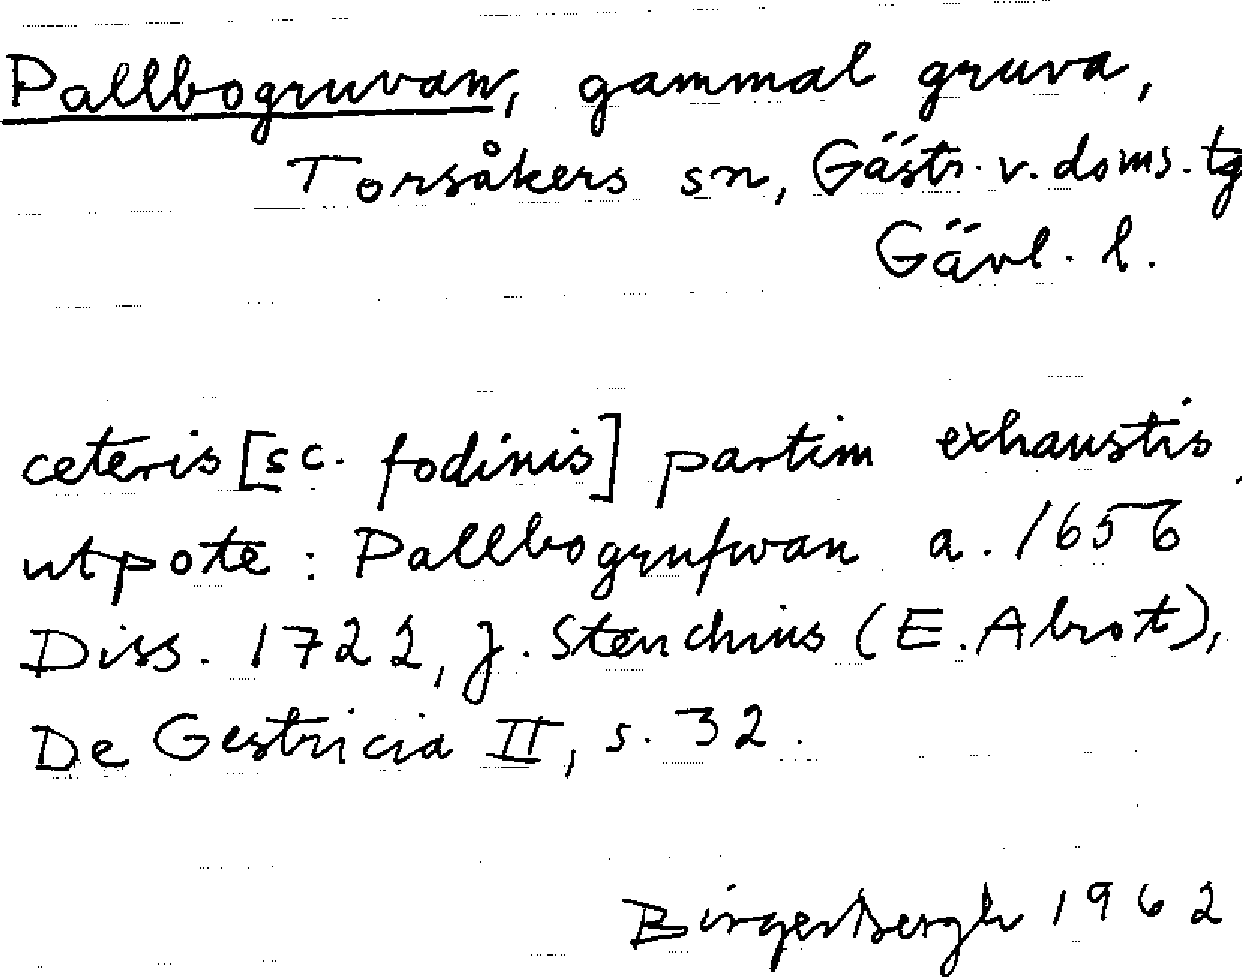 Pallbogruvan, gammal gruva,
Torsåkers sn, Gästr. v. doms. tg
Gävl. l.
ceteris [sc. fodinis] partim exhaustis,
utpote: Pallbogrufwan a. 1656
Diss. 1722, J. Stenchius (E. Abrot),
De Gestricia II, s. 32.
Birger Bergh 1962